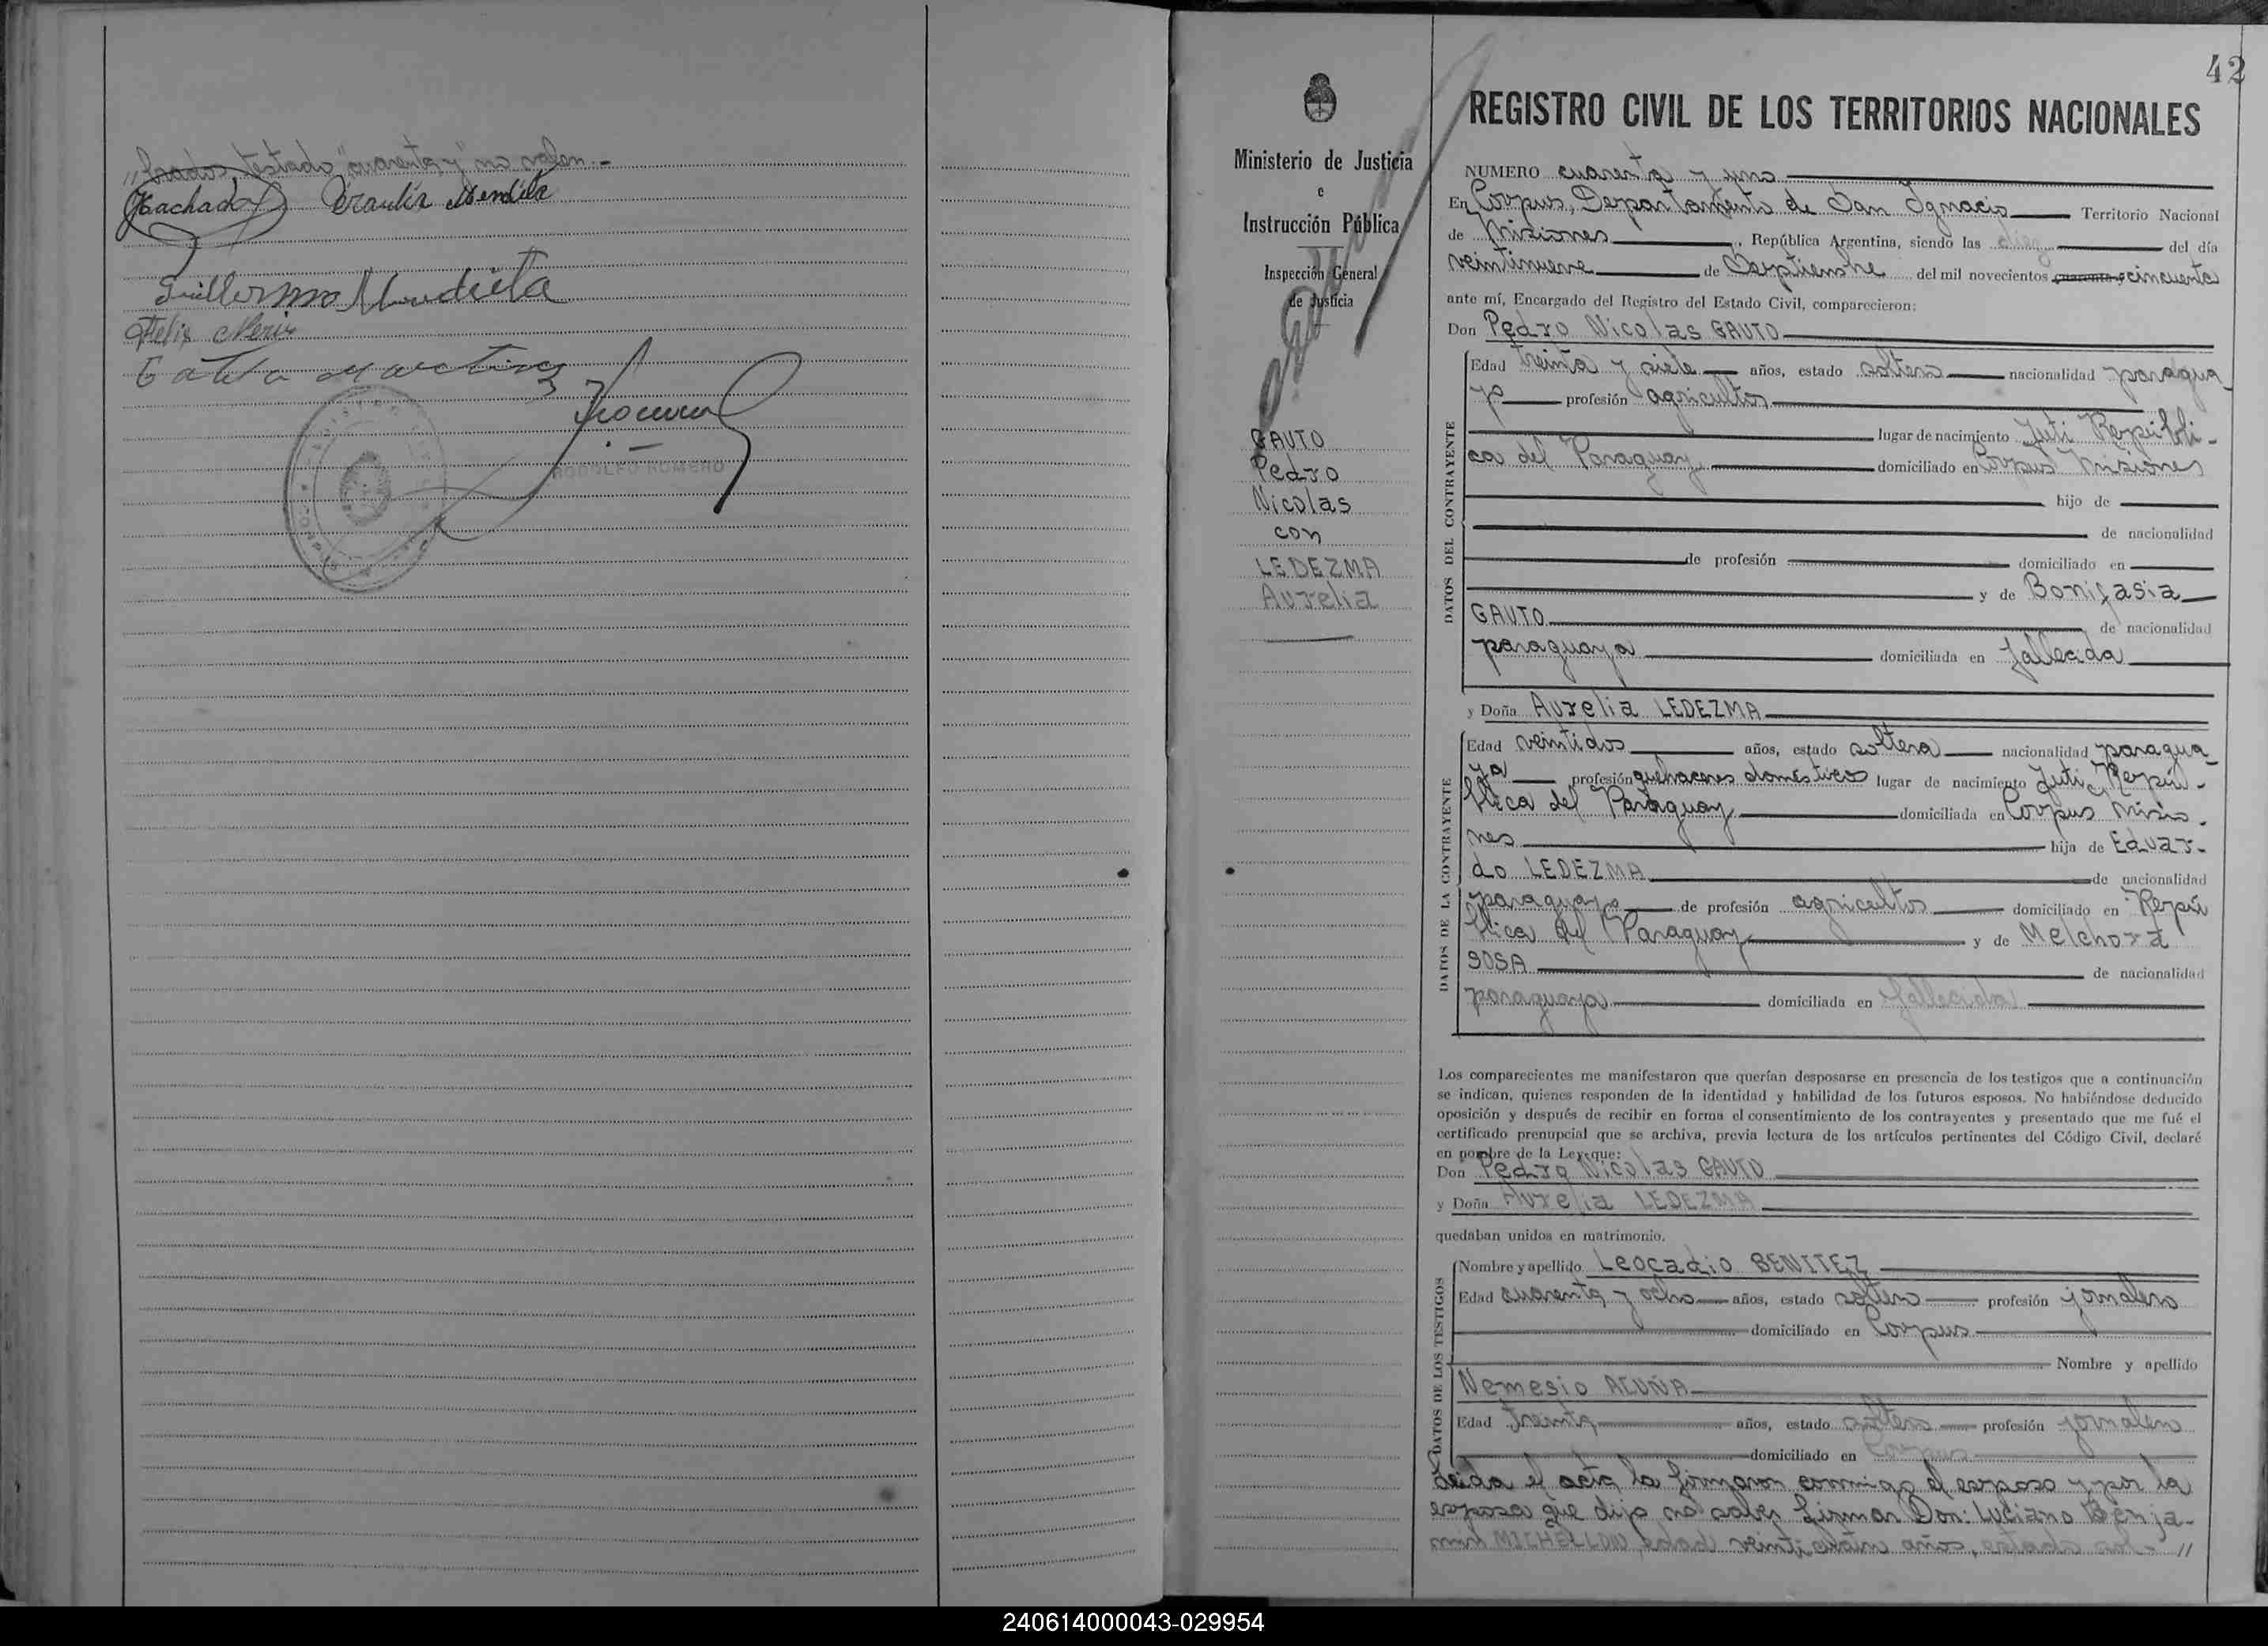 "brados, testado "cuarenta y" no valen.-
Machado
Braulia Mendieta
Guillermo Mendieta
Felix Neris
Martinez
RODOLFO ROMERO
42
REGISTRO CIVIL DE LOS TERRITORIOS NACIONALES
Ministerio de Justicia
e
Instrucción Pública
Inspección General
de Justicia
GAUTO
Pedro
Nicolas
con
LEDEZMA
Aurelia
NUMERO cuarenta y uno
En Corpus, Departamento de San Ignacio Territorio Nacional
de Misiones, República Argentina, siendo las diez del día
veintinueve de Septiembre del mil novecientos cuarenta y cincuenta
ante mí, Encargado del Registro del Estado Civil, comparecieron:
Don Pedro Nicolas GAUTO
DATOS DEL CONTRAYENTE
Edad treinta y siete años, estado soltero nacionalidad paragua-
yo profesión agricultor
lugar de nacimiento Yuti Repúbli-
ca del Paraguay domiciliado en Corpus Misiones
hijo de
de nacionalidad
de profesión domiciliado en
y de Bonifasia
GAUTO de nacionalidad
paraguaya domiciliada en fallecida
y Doña Aurelia LEDEZMA
DATOS DE LA CONTRAYENTE
Edad veintidos años, estado soltera nacionalidad paragua-
ya profesión quehaceres domésticos lugar de nacimiento Yuti Repú-
blica del Paraguay domiciliada en Corpus Misio-
nes hija de Eduar-
do LEDEZMA de nacionalidad
paraguayo de profesión agricultor domiciliado en Repú
blica del Paraguay y de Melchora
SOSA de nacionalidad
paraguaya domiciliada en fallecida
Los comparecientes me manifestaron que querían desposarse en presencia de los testigos que a continuación
se indican, quienes responden de la identidad y habilidad de los futuros esposos. No habiéndose deducido
oposición y después de recibir en forma el consentimiento de los contrayentes y presentado que me fué el
certificado prenupcial que se archiva, previa lectura de los artículos pertinentes del Código Civil, declaré
en nombre de la Ley que:
Don Pedro Nicolas GAUTO
y Doña Aurelia LEDEZMA
quedaban unidos en matrimonio.
DATOS DE LOS TESTIGOS
Nombre y apellido Leocadio BENITEZ
Edad cuarenta y ocho años, estado soltero profesión jornalero
domiciliado en Corpus
Nombre y apellido
Nemesio ACUÑA
Edad treinta años, estado soltero profesión jornalero
domiciliado en Corpus
Leida el acta la firmaron conmigo el esposo y por la
esposa que dijo no saber firmar Don: Luciano Benja-
min MICHELLON, edad veinticuatro años, estado sol- "
240614000043-029954